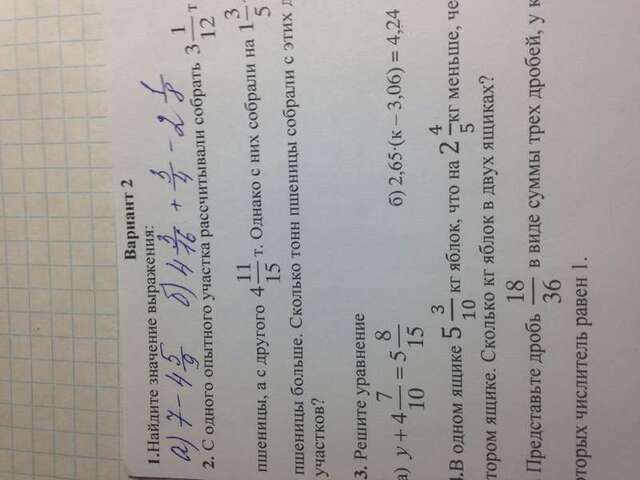 Вариант 2
1.Найдите значение выражения:
а) 7 - 4 5/9 б) 4 3/16 + 3/4 - 2 1/8
2. С одного опытного участка рассчитывали собрать 3 1/12 т
пшеницы, а с другого 4 11/15 т. Однако с них собрали на 1 3/5 т
пшеницы больше. Сколько тонн пшеницы собрали с этих д
участков?
3. Решите уравнение
а) y + 4 7/10 = 5 8/15 б) 2,65·(к – 3,06) = 4,24
.В одном ящике 5 3/10 кг яблок, что на 2 4/5 кг меньше, че
тором ящике. Сколько кг яблок в двух ящиках?
Представьте дробь 18/36 в виде суммы трех дробей, у к
оторых числитель равен 1.